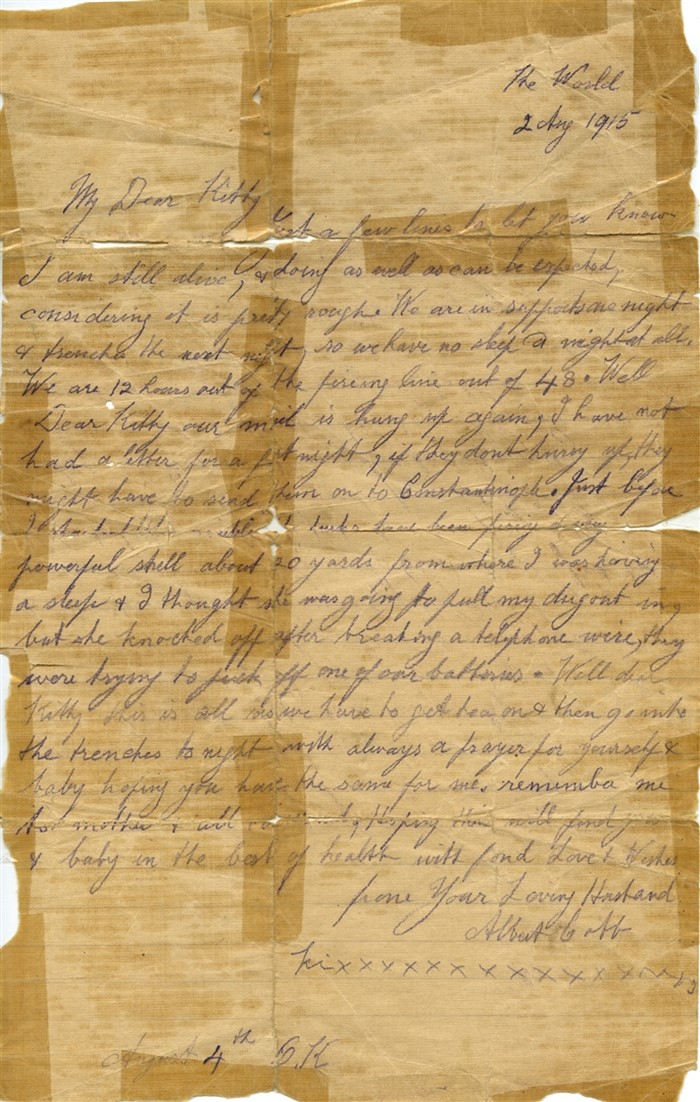 The World
2 Aug 1915
My Dear Kitty
Just a few lines to let you know
I am still alive, & doing as well as can be expected,
considering it is pretty rough. We are in supports one night
& trenches the next night, so we have no sleep a night at all.
We are 12 hours out of the fireing line out of 48. Well
Dear Kitty our mail is hung up again, I have not
had a letter for a fortnight, if they dont hurry up, they
might have to send them on to Constantinople. Just before
I started this turks have been firing a very
powerful shell about 20 yards from where I was having
a sleep & I thought she was going to pull my dugout in,
but she knocked off after breaking a telephone wire, they
were trying to pick off one of our batteries. Well dear
Kitty this is all as we have to get tea on & then go into
the trenches to night with always a prayer for yourself &
baby hoping you have the same for me. rememba me
to mother & all Hoping this will find you
& baby in the best of health with fond Love & Wishes
from Your Loving Husband
Albert Cobb
xxxxxxxxxxxxx
August 4th O.K